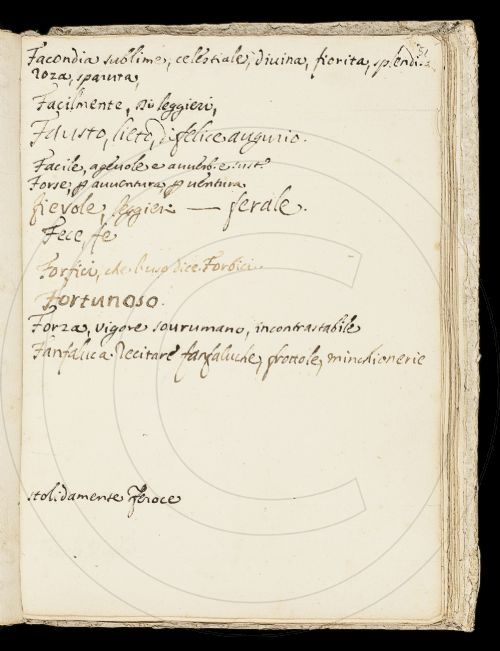 51
Facondia sublime, celestiale, divina, fiorita, splendi-
roza, sparuta,
Facilmente, di leggieri,
Fausto, lieto, di felice augurio.
Facile, agevole e avverb. e sust.º
Forse, p avventura p ventura
fievole, leggieri — ferale.
Fece, fe
Forfici, che l'uso dice Forbici.
Fortunoso.
Forza, vigore sovrumano, incontrastabile
Fanfalica Recitare fanfaluche, frottole, minchionerie
stolidamente feroce